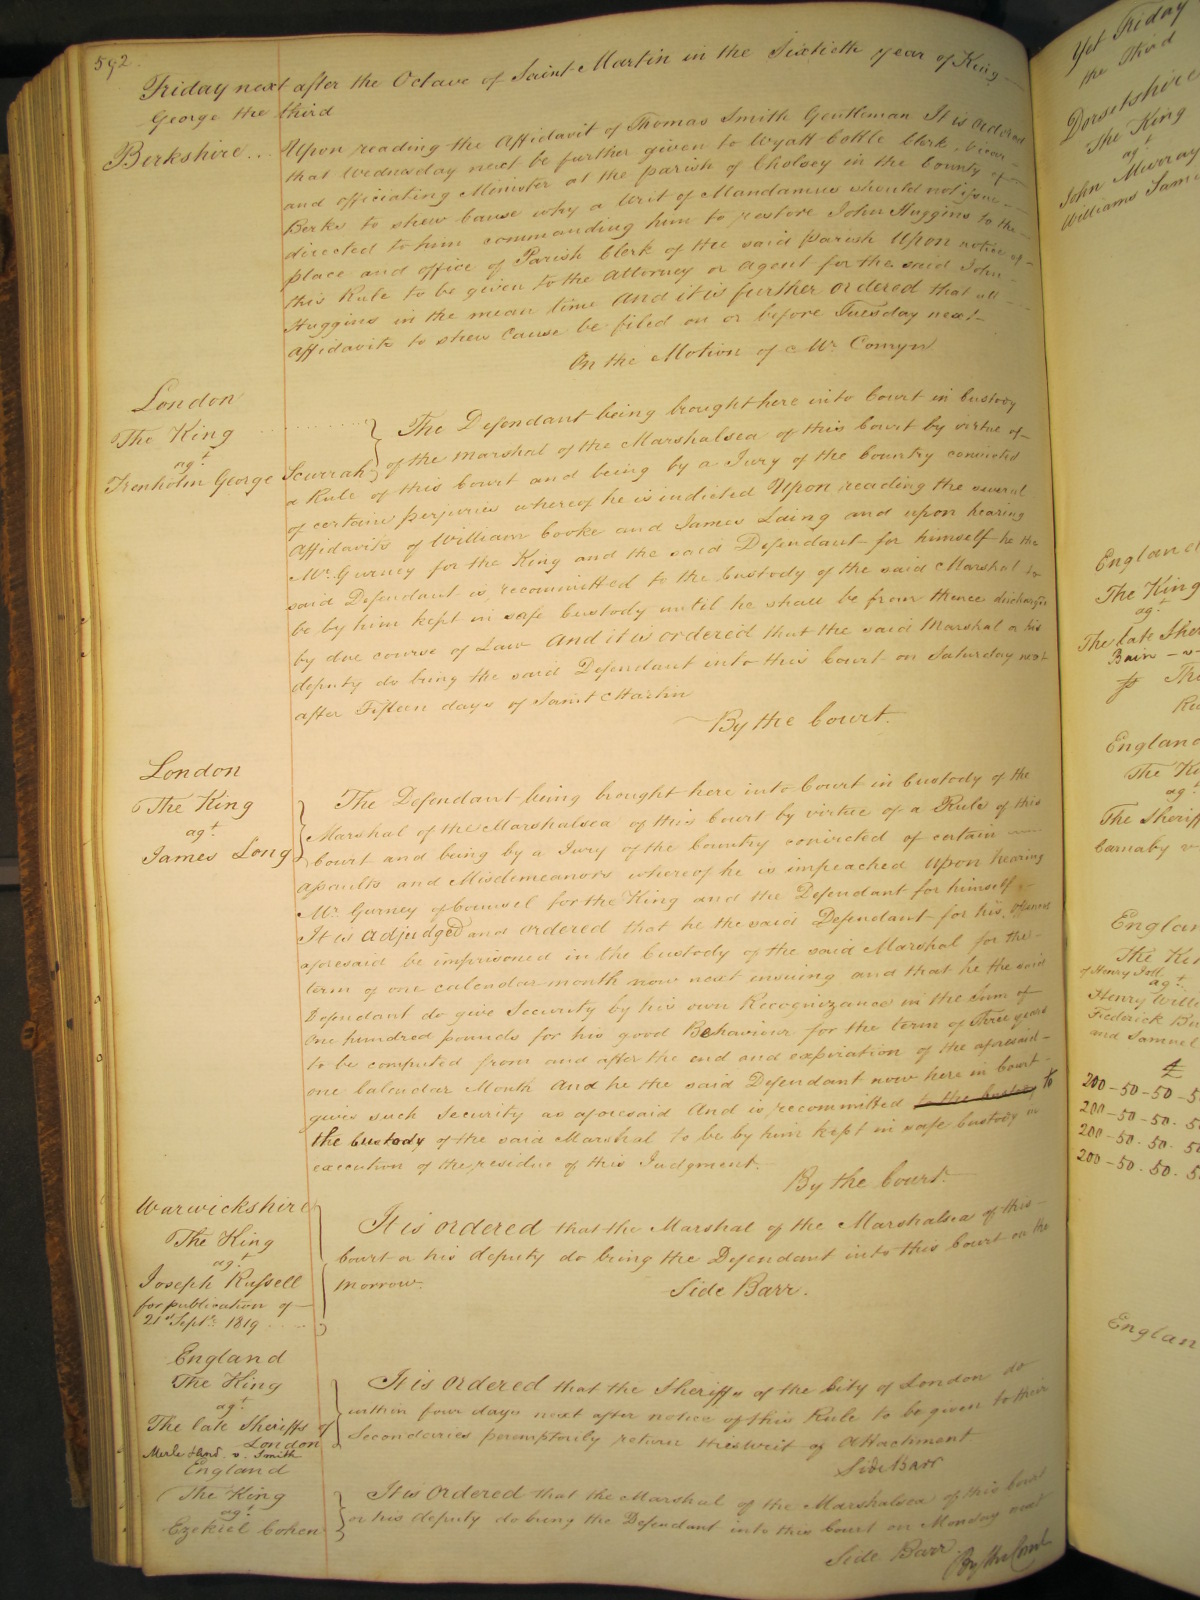 592.
Friday next after the Octave of Saint Martin in the Sixtieth year of King
George the third
Berkshire... Upon reading the Affidavit of Thomas Smith Gentleman It is ordered
that Wednesday next be further given to Wyatt Cottle Clerk, Vicar
and officiating Minister of the parish of Cholsey in the County of
Berks to shew Cause why a Writ of Mandamus should not issue
directed to him commanding him to restore John Huggins to the
place and office of Parish Clerk of the said parish Upon notice of
this Rule to be given to the Attorney or Agent for the said John
Huggins in the mean time And it is further ordered that all
affidavits to shew Cause be filed on or before Tuesday next
On the Motion of Mr. Comyn
London
The King
agt.
Trenholm George Scurrah
The Defendant being brought here into Court in Custody
of the Marshal of the Marshalsea of this Court by virtue of
a Rule of this Court and being by a Jury of the Country convicted
of certain perjuries whereof he is indicted Upon reading the several
Affidavits of William Cooke and James Laing and upon hearing
Mr. Gurney for the King and the said Defendant for himself he the
said Defendant is recommitted to the Custody of the said Marshal to
be by him kept in safe Custody until he shall be from thence discharged
by due course of Law And it is ordered that the said Marshal or his
deputy do bring the said Defendant into this Court on Saturday next
after Fifteen days of Saint Martin
By the Court.
London
The King
agt.
James Long
The Defendant being brought here into Court in Custody of the
Marshal of the Marshalsea of this Court by virtue of a Rule of this
Court and being by a Jury of the Country convicted of certain
assaults and Misdemeanors whereof he is impeached Upon hearing
Mr. Gurney of Counsel for the King and the Defendant for himself
It is adjudged and ordered that he the said Defendant for his offences
aforesaid be imprisoned in the Custody of the said Marshal for the
term of one calendar month now next ensuing and that he the said
Defendant do give Security by his own Recognizance in the Sum of
One hundred pounds for his good Behaviour for the term of Three years
to be computed from and after the end and expiration of the aforesaid
one Calendar Month And he the said Defendant now here in Court
gives such Security as aforesaid And is recommitted to the custody to
the Custody of the said Marshal to be by him kept in safe Custody in
execution of the residue of this Judgment.
By the Court.
Warwickshire
The King
agt.
Joseph Russell
for publication of
21st Septr. 1819
It is ordered that the Marshal of the Marshalsea of this
Court or his deputy do bring the Defendant into this Court on the
morrow.
Side Barr.
England
The King
agt.
The late Sheriffs of
London
Merle & and. v. Smith
It is ordered that the Sheriffs of the City of London do
within four days next after notice of this Rule to be given to their
Secondaries peremptorily return the writ of Attachment
Side Barr
England
The King
agt.
Ezekiel Cohen
It is ordered that the Marshal of the Marshalsea of this Court
or his deputy do bring the Defendant into this Court on Monday next
Side Barr. By the Court
Yet Friday
the Third
Dorsetshire
The King
agt.
John Murray
Williams
England
The King
agt.
The late
Bain v
England
The
agt.
The Sheriff
Carnaby v
The
of Henry
agt.
Henry
Frederick
and Samuel
200-50-50-5
200-50-50-
200-50-50-
200-50-50-